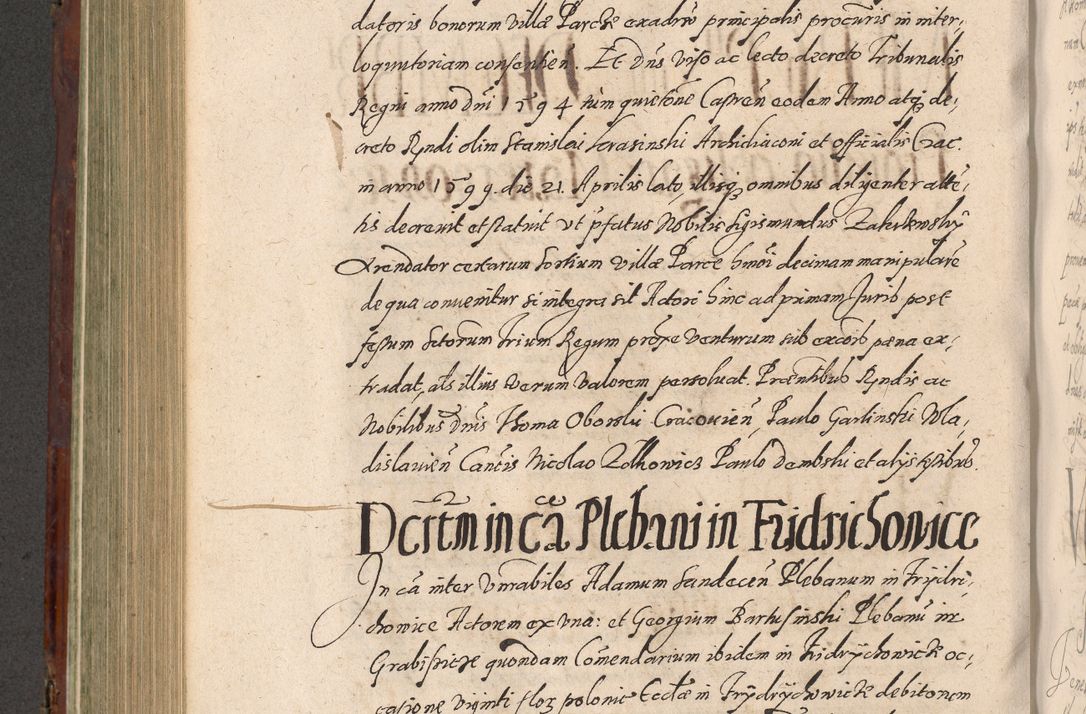 datoris bonorum villæ Parcze ex adrῡo principalis procūris in inter,
loquutoriam consensien̄. Et Dn̄s viso ac lecto decreto Tribunalis
Regni anno Dn̄i 1594 tūm quietōne Castren̄ eodem Anno atq; de,
creto Rn̄di olim Stanislai Krasinski Archidiaconi et officialis Crac.
in anno 1599. die 21. Aprilis lato, illisq; omnibus diligenter atte,
tis decrevit et statuit ut p̄fatus Nobilis Sigismundus Zakrzewsky
Arendator certarum sortium villæ Parce hmōi decimam manipularē
de qua convenitur si integra sit Actori hinc ad primam Juris post
festum sctorum Trium Regum proxe venturum sub excōis pæna ex,
tradat, als illius verum valorem persoluat. Præsentibus Rndis ac
Nobilibus Dnis Thoma Oborski Cracovien̄, Paulo Garlinski Vla,
dislavien̄ Cancis Nicolao Zolkowicz Paulo Dembski et alys testibus.
Dcrtm in cā Plebani in Fridrichowice
In cā inter Vnrabiles Adamum Sandecen̄ Plebanum in Fryidri,
chowice Actorem ex vna: et Georgium Bartusinski Plebanū in
Grabissicze quondam Comendarium ibidem in Fridrychowicze oc,
casione viginti flor polonic Ecclæ in Frydrychowicze debitorem